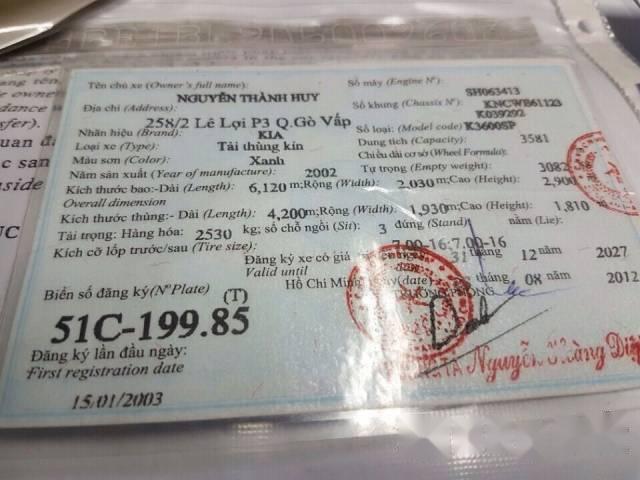 Tên chủ xe (Owner's full name): NGUYỄN THÀNH HUY
Số máy (Engine Nº): SH063413
Địa chỉ (Address): 258/2 Lê Lợi P3 Q.Gò Vấp
Số khung (Chassis Nº): KNCWB61123
K039292
Nhãn hiệu (Brand): KIA
Số loại: (Model code) K3600SP
Loại xe (Type): Tải thùng kín
Dung tích (Capacity): 3581
Màu sơn (Color): Xanh
Chiều dài cơ sở (Wheel Formula):
Năm sản xuất (Year of manufacture): 2002
Tự trọng (Empty weight): 3082
Kích thước bao: Dài (Length): 6,120 m; Rộng (Width): 2,030 m; Cao (Height): 2,900
Overall dimension
Kích thước thùng: - Dài (Length): 4,200 m; Rộng (Width): 1,930 m; Cao (Height): 1,810 m
Tải trọng: Hàng hóa: 2530 kg; số chỗ ngồi (Sit): 3 đứng (Stand) nằm (Lie):
Kích cỡ lốp trước/sau (Tire size): 7.00-16; 7.00-16
Đăng ký xe có giá 31 tháng 12 năm 2027
Valid until
Hồ Chí Minh, ngày (date) tháng 08 năm 2012
Biển số đăng ký (Nº Plate) (T)
51C-199.85
Đăng ký lần đầu ngày:
First registration date
15/01/2003
Nguyễn Hoàng